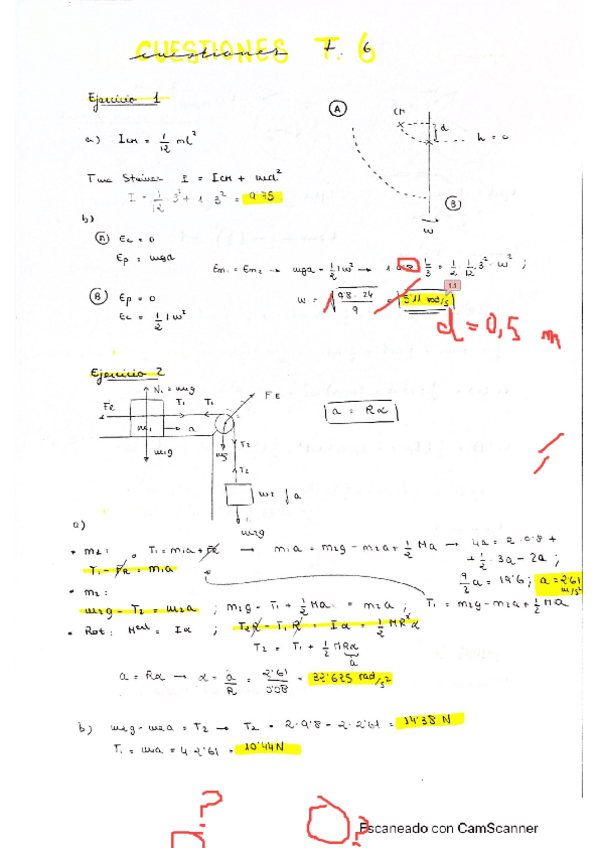 CUESTIONES T. 6
cuestiones t 6
Ejercicio 1
a) ICM = 1/12 ml²
Steiner I = ICM + md²
I = 1/12 · 3² + 1 · 3² = 9'75
b)
A Ec = 0
Ep = mgd
B Ep = 0
Ec = 1/2 Iω²
A
CM
d
h = 0
B
ω
Em1 = Em2 → mgd = 1/2 Iω² →
1/3 = 1/2 · 1/12 · 3² · ω² ;
1.1
ω = √(98 · 24 / 9) = 5'11 rad/s
d = 0,5 m
Ejercicio 2
N1 = m1g
FR
T1
T2
FE
m1
a
m1g
T2
T2
m2
a
m2g
a = Rα
a)
• m1: T1 = m1a + FR → m1a = m2g - m2a + 1/2 Ma → 4a = 2 · 9'8 +
+ 1/2 · 3a - 2a ;
T1 - FR = m1a
9/2 a = 19'6 ; a = 2'61 m/s²
• m2:
m2g - T2 = m2a ; m2g - T1 + 1/2 Ma = m2a ; T1 = m2g - m2a + 1/2 Ma
• Rot: Mext = Iα ; T2R - T1R = Iα = 1/2 MR²α
T2 = T1 + 1/2 MRα
a
a = Rα → α = a/R = 2'61/0'08 = 32'625 rad/s²
b) m2g - m2a = T2 → T2 = 2 · 9'8 - 2 · 2'61 = 14'38 N
T1 = m1a = 4 · 2'61 = 10'44 N
?
?
Escaneado con CamScanner